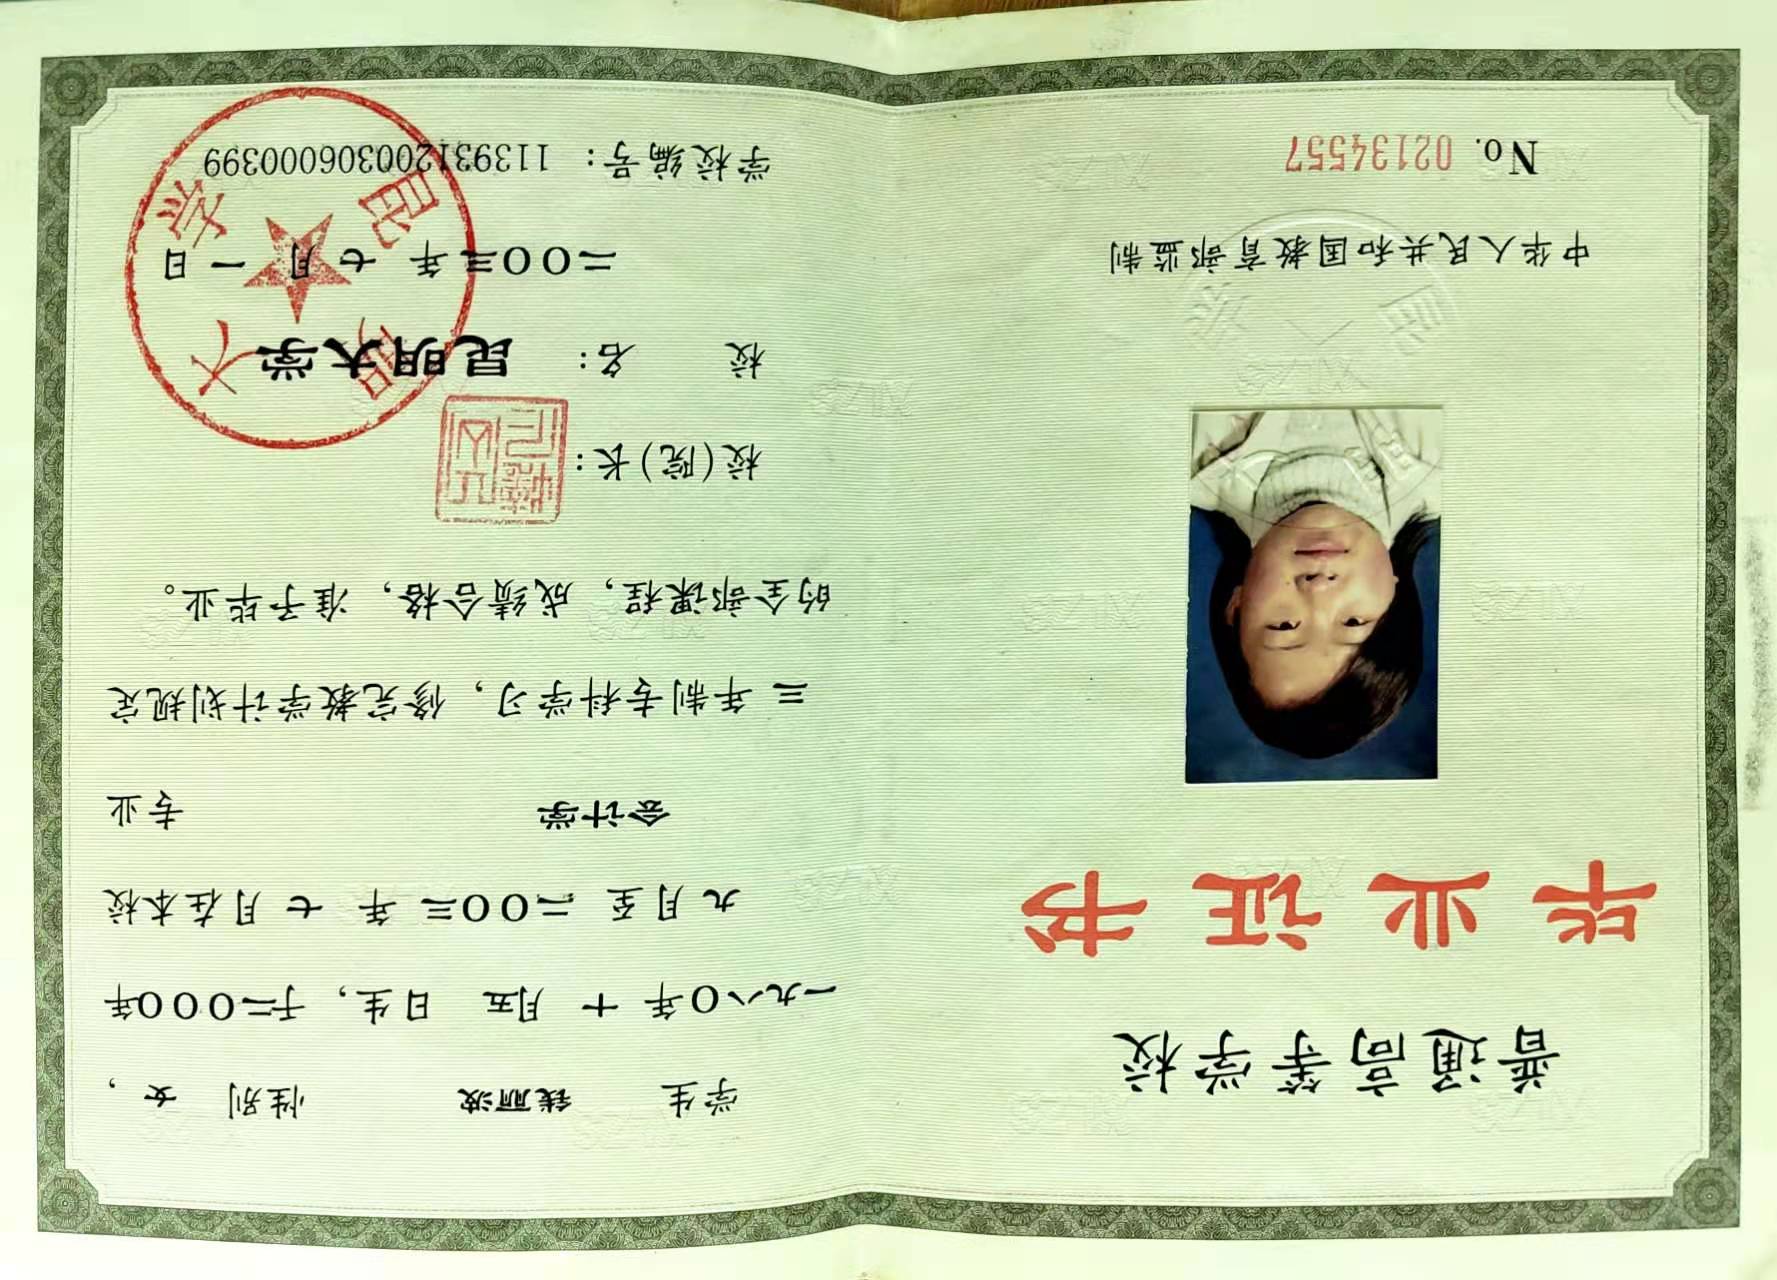 普通高等学校
毕业证书
中华人民共和国教育部监制
No. 02134557
学生 钱丽波 性别 女，
一九八〇年 十 月五 日生，于二〇〇〇年
九月至 二〇〇三 年 七 月在本校
会计学 专业
三 年制专科学习，修完教学计划规定
的全部课程，成绩合格，准予毕业。
校(院)长：
校 名： 昆明大学
二〇〇三年 七 月 一 日
学校编号：113931200306000399
昆明大学